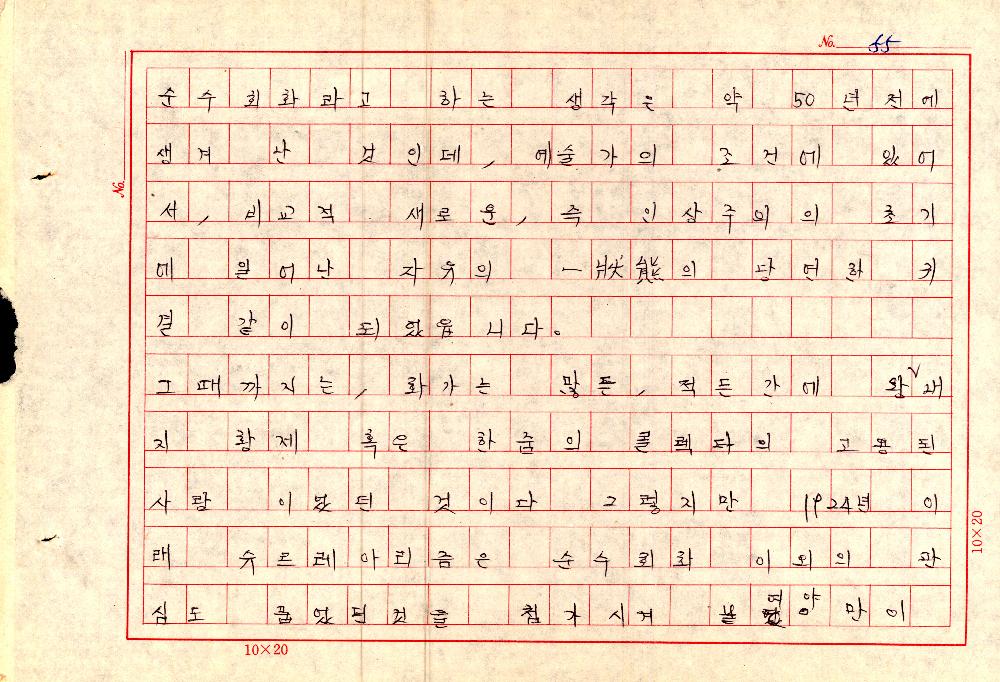 No. 55
순수회화라고 하는 생각은 약 50년전에
생겨 난 것인데, 예술가의 조건에 있어
서, 비교적 새로운, 즉 인상주의의 초기
에 일어나 자유의 一狀態의 당연한 귀
결 같이 되었읍니다。
그때까지는, 화가는 많든, 적든간에 왕 내
지 황제 혹은 한줌의 콜렉타의 고용된
사람 이었던 것이다 그렇지만 1924년 이
래 슈르레아리즘은 순수회화 이외의 관
심도 품었던것을 첨가시켜 만이
No.
10×20
10×20